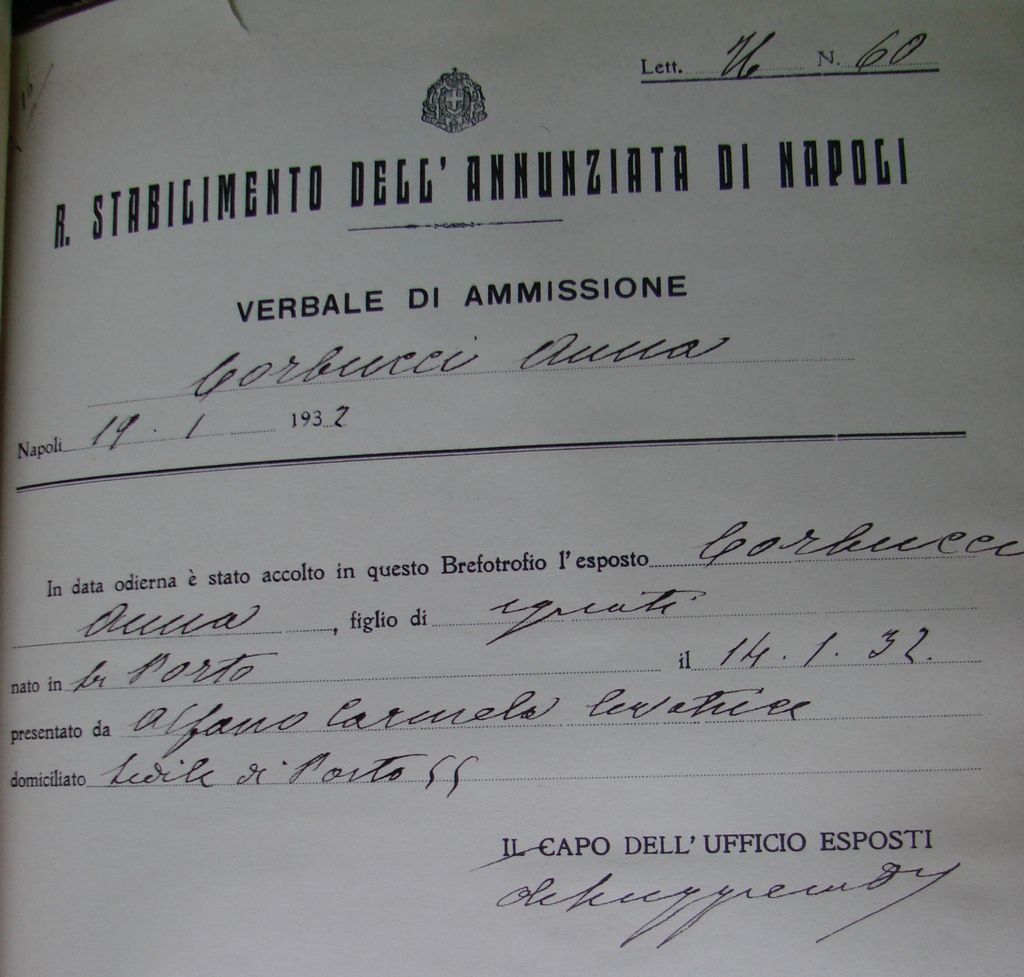 Lett. N. 60
R. STABILIMENTO DELL'ANNUNZIATA DI NAPOLI
VERBALE DI AMMISSIONE
Corbucci Anna
Napoli 19 . 1 1932
In data odierna è stato accolto in questo Brefotrofio l'esposto Corbucci
Anna, figlio di ignoti
nato in Porto il 14 . 1 . 32.
presentato da Alfano Carmela levatrice
domiciliato Sedile di Porto 55
IL CAPO DELL'UFFICIO ESPOSTI